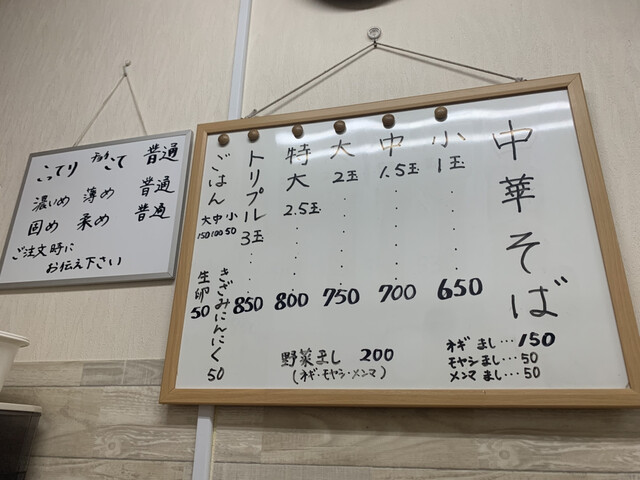 中華そば
小 1玉 650
中 1.5玉 700
大 2玉 750
特大 2.5玉 800
トリプル 3玉 850
ごはん 大中小 150 100 50
きざみにんにく 50
生卵 50
ネギ まし…150
モヤシまし…50
メンマ まし…50
野菜まし 200
(ネギ・モヤシ・メンマ)
こってり こて 普通
濃いめ 薄め 普通
固め 柔め 普通
ご注文時に
お伝え下さい